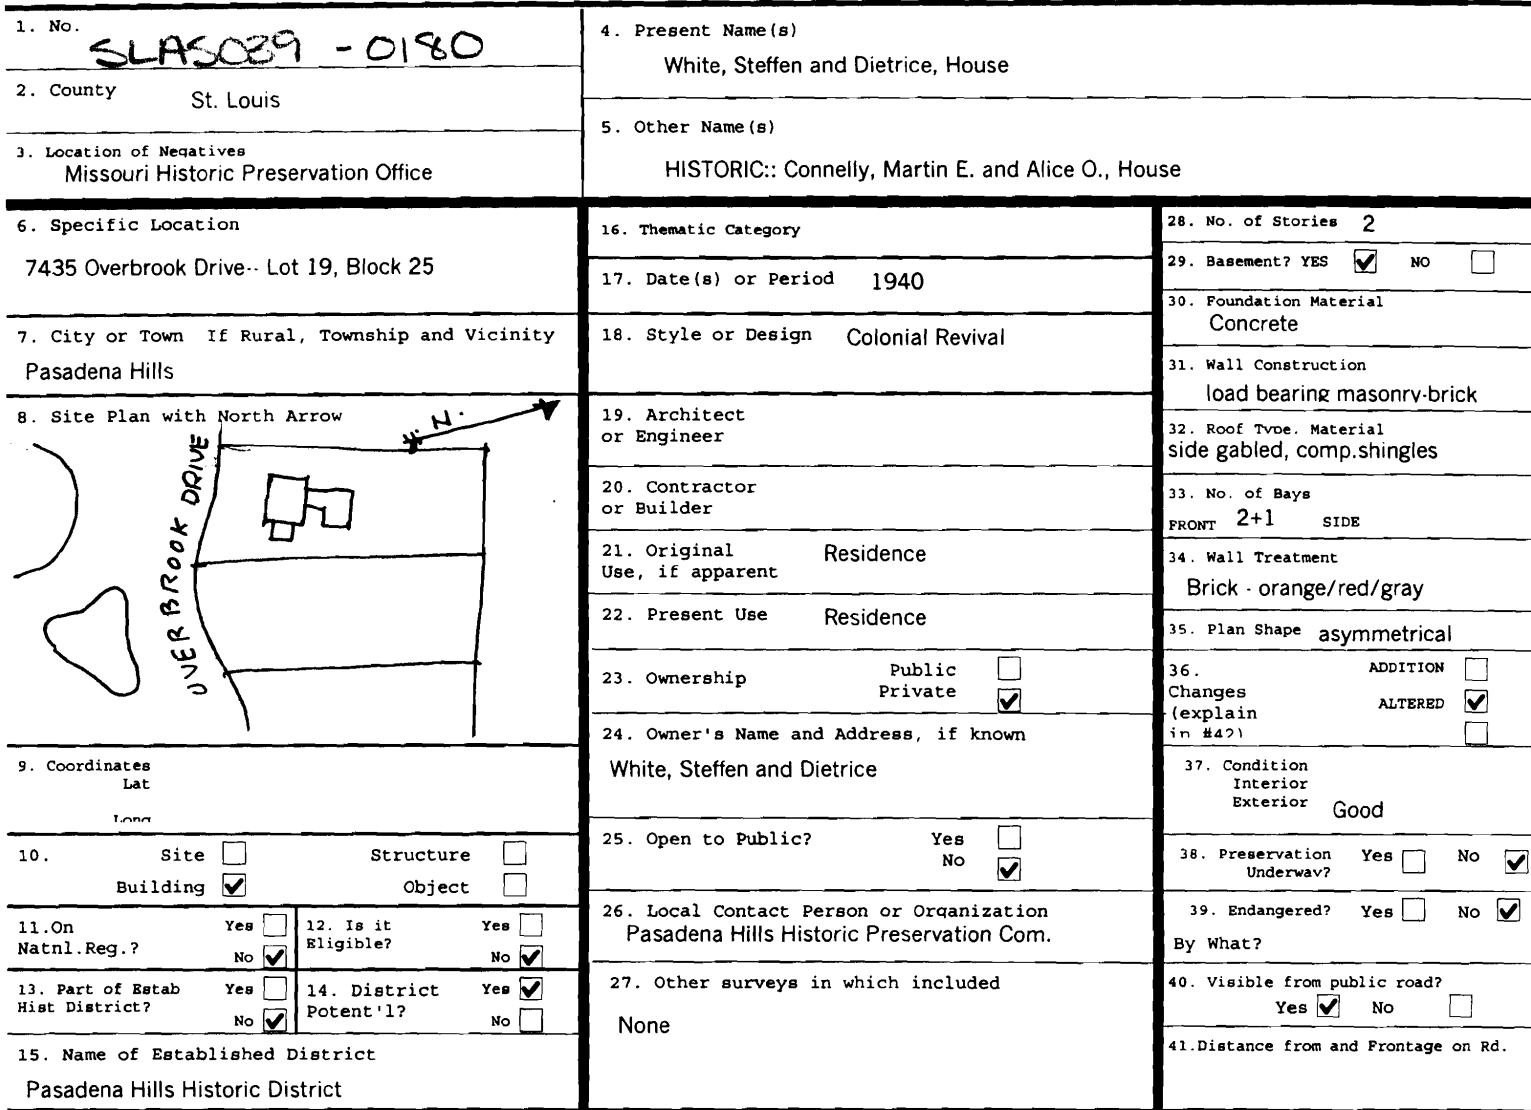 1. No.
SLAS039 - 0180
2. County St. Louis
3. Location of Negatives
Missouri Historic Preservation Office
4. Present Name(s)
White, Steffen and Dietrice, House
5. Other Name(s)
HISTORIC:: Connelly, Martin E. and Alice O., House
6. Specific Location
7435 Overbrook Drive-- Lot 19, Block 25
7. City or Town If Rural, Township and Vicinity
Pasadena Hills
8. Site Plan with North Arrow
N.
OVERBROOK DRIVE
9. Coordinates
Lat
Long
10. Site Structure
Building ✔ Object
11.On Natnl.Reg.? Yes No ✔
12. Is it Eligible? Yes No ✔
13. Part of Estab Hist District? Yes No ✔
14. District Potent'l? Yes ✔ No
15. Name of Established District
Pasadena Hills Historic District
16. Thematic Category
17. Date(s) or Period 1940
18. Style or Design Colonial Revival
19. Architect
or Engineer
20. Contractor
or Builder
21. Original Residence
Use, if apparent
22. Present Use Residence
23. Ownership Public
Private ✔
24. Owner's Name and Address, if known
White, Steffen and Dietrice
25. Open to Public? Yes
No ✔
26. Local Contact Person or Organization
Pasadena Hills Historic Preservation Com.
27. Other surveys in which included
None
28. No. of Stories 2
29. Basement? YES ✔ NO
30. Foundation Material
Concrete
31. Wall Construction
load bearing masonry-brick
32. Roof Type. Material
side gabled, comp.shingles
33. No. of Bays
FRONT 2+1 SIDE
34. Wall Treatment
Brick - orange/red/gray
35. Plan Shape asymmetrical
36. ADDITION
Changes
(explain ALTERED ✔
in #42)
37. Condition
Interior
Exterior Good
38. Preservation Yes No ✔
Underway?
39. Endangered? Yes No ✔
By What?
40. Visible from public road?
Yes ✔ No
41.Distance from and Frontage on Rd.